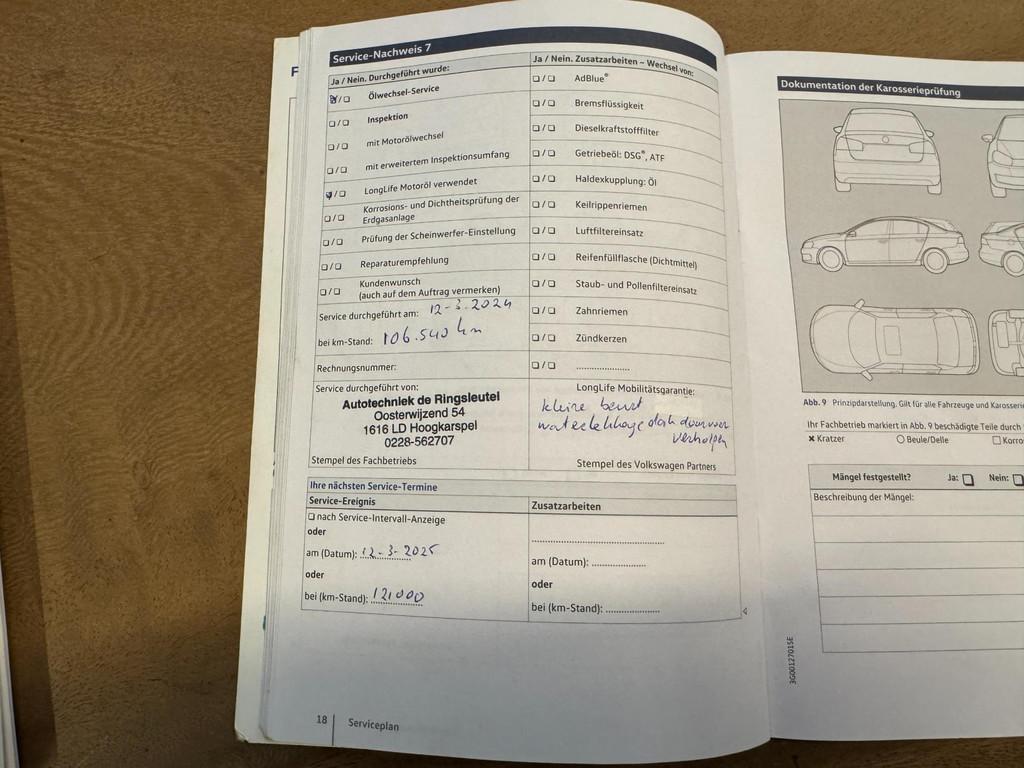 F
Service-Nachweis 7
Ja / Nein. Durchgeführt wurde:
Ölwechsel-Service
Inspektion
mit Motorölwechsel
mit erweitertem Inspektionsumfang
LongLife Motoröl verwendet
Korrosions- und Dichtheitsprüfung der
Erdgasanlage
Prüfung der Scheinwerfer-Einstellung
Reparaturempfehlung
Kundenwunsch
(auch auf dem Auftrag vermerken)
Service durchgeführt am: 12-3-2024
bei km-Stand: 106.540 km
Rechnungsnummer:
Service durchgeführt von:
Autotechniek de Ringsleutel
Oosterwijzend 54
1616 LD Hoogkarspel
0228-562707
Stempel des Fachbetriebs
Ja / Nein. Zusatzarbeiten – Wechsel von:
AdBlue®
Bremsflüssigkeit
Dieselkraftstofffilter
Getriebeöl: DSG®, ATF
Haldexkupplung: Öl
Keilrippenriemen
Luftfiltereinsatz
Reifenfüllflasche (Dichtmittel)
Staub- und Pollenfiltereinsatz
Zahnriemen
Zündkerzen
....................
LongLife Mobilitätsgarantie:
kleine beurt
waterlekkage dak
verholpen
Stempel des Volkswagen Partners
Ihre nächsten Service-Termine
Service-Ereignis
nach Service-Intervall-Anzeige
oder
am (Datum): 12-3-2025
oder
bei (km-Stand): 121000
Zusatzarbeiten
am (Datum):
oder
bei (km-Stand):
18 Serviceplan
Dokumentation der Karosserieprüfung
Abb. 9 Prinzipdarstellung. Gilt für alle Fahrzeuge und
Ihr Fachbetrieb markiert in Abb. 9 beschädigte Teile durch
Kratzer Beule/Delle
Mängel festgestellt? Ja: Nein:
Beschreibung der Mängel:
3G0012701SE